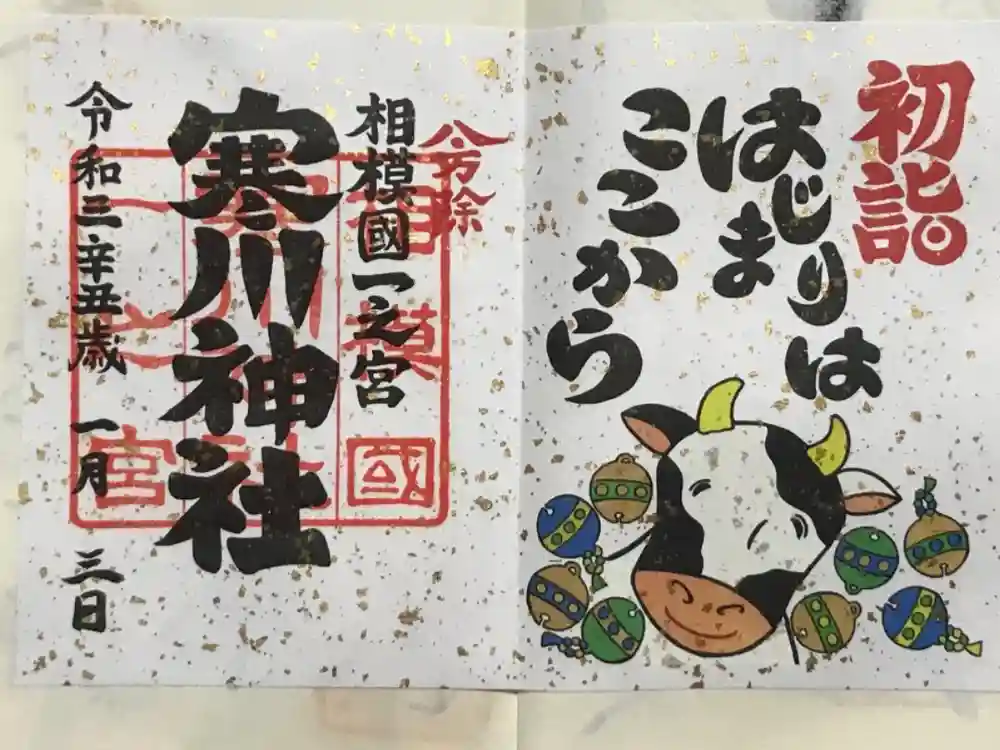 初詣
はじりは
はじまりは
ここから
八方除
相模國一之宮
寒川神社
令和三辛丑歳 一月 三日
相模國
一之宮